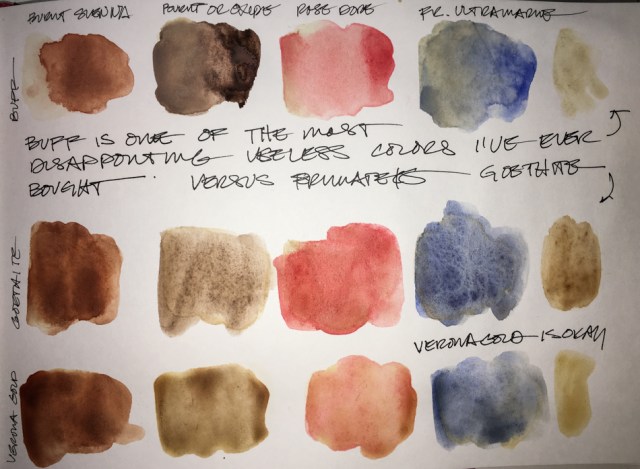 BURNT SIENNA
ROSE DORE
FR. ULTRAMARINE
BUFF
BUFF IS ONE OF THE MOST
DISAPPONTING USELESS COLORS I'VE EVER
BOUGHT. VERSUS PRIMATEKS GOETHITE
GOETHITE
VERONA GOLD IS OKAY
VERONA GOLD